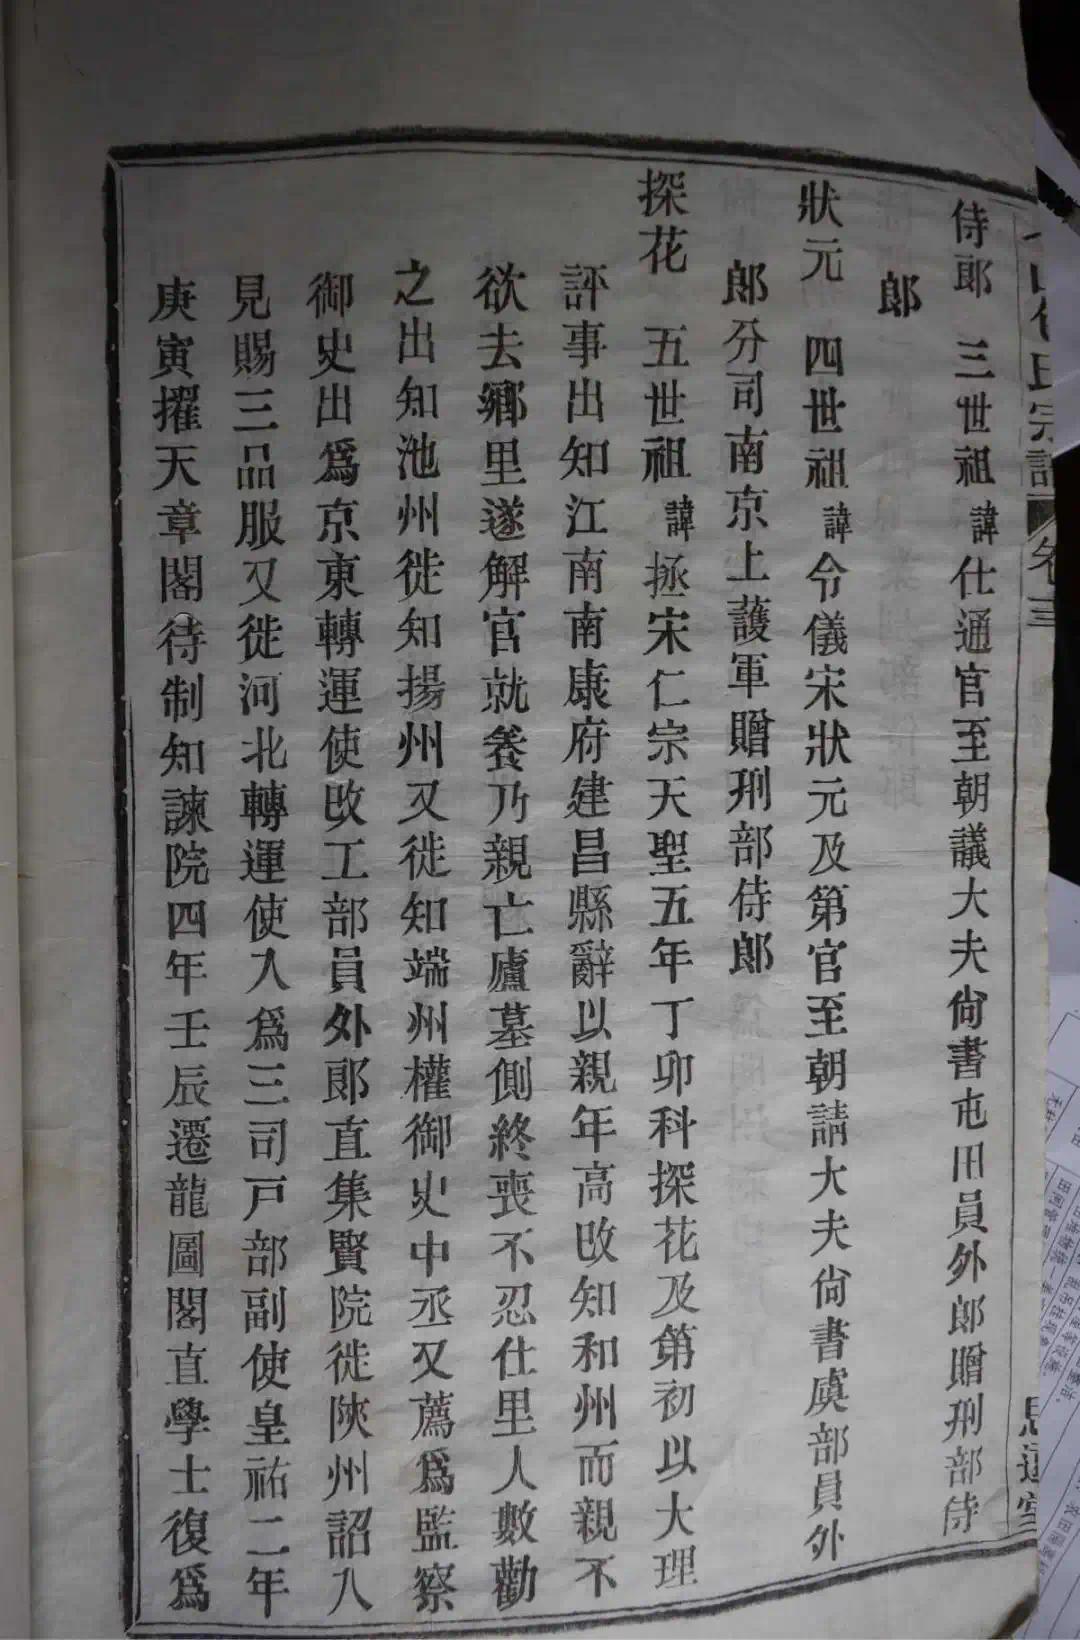 包氏宗譜 卷三
侍郎 三世祖諱仕通官至朝議大夫尙書屯田員外郎贈刑部侍
郎
狀元 四世祖諱令儀宋狀元及第官至朝請大夫尙書虞部員外
郎分司南京上護軍贈刑部侍郎
探花 五世祖諱拯宋仁宗天聖五年丁卯科探花及第初以大理
評事出知江南南康府建昌縣辭以親年高改知和州而親不
欲去鄉里遂解官就養乃親亡廬墓側終喪不忍仕里人數勸
之出知池州徙知揚州又徙知端州權御史中丞又薦爲監察
御史出爲京東轉運使改工部員外郎直集賢院徙陝州詔入
見賜三品服又徙河北轉運使入爲三司戸部副使皇祐二年
庚寅擢天章閣待制知諫院四年壬辰遷龍圖閣直學士復爲